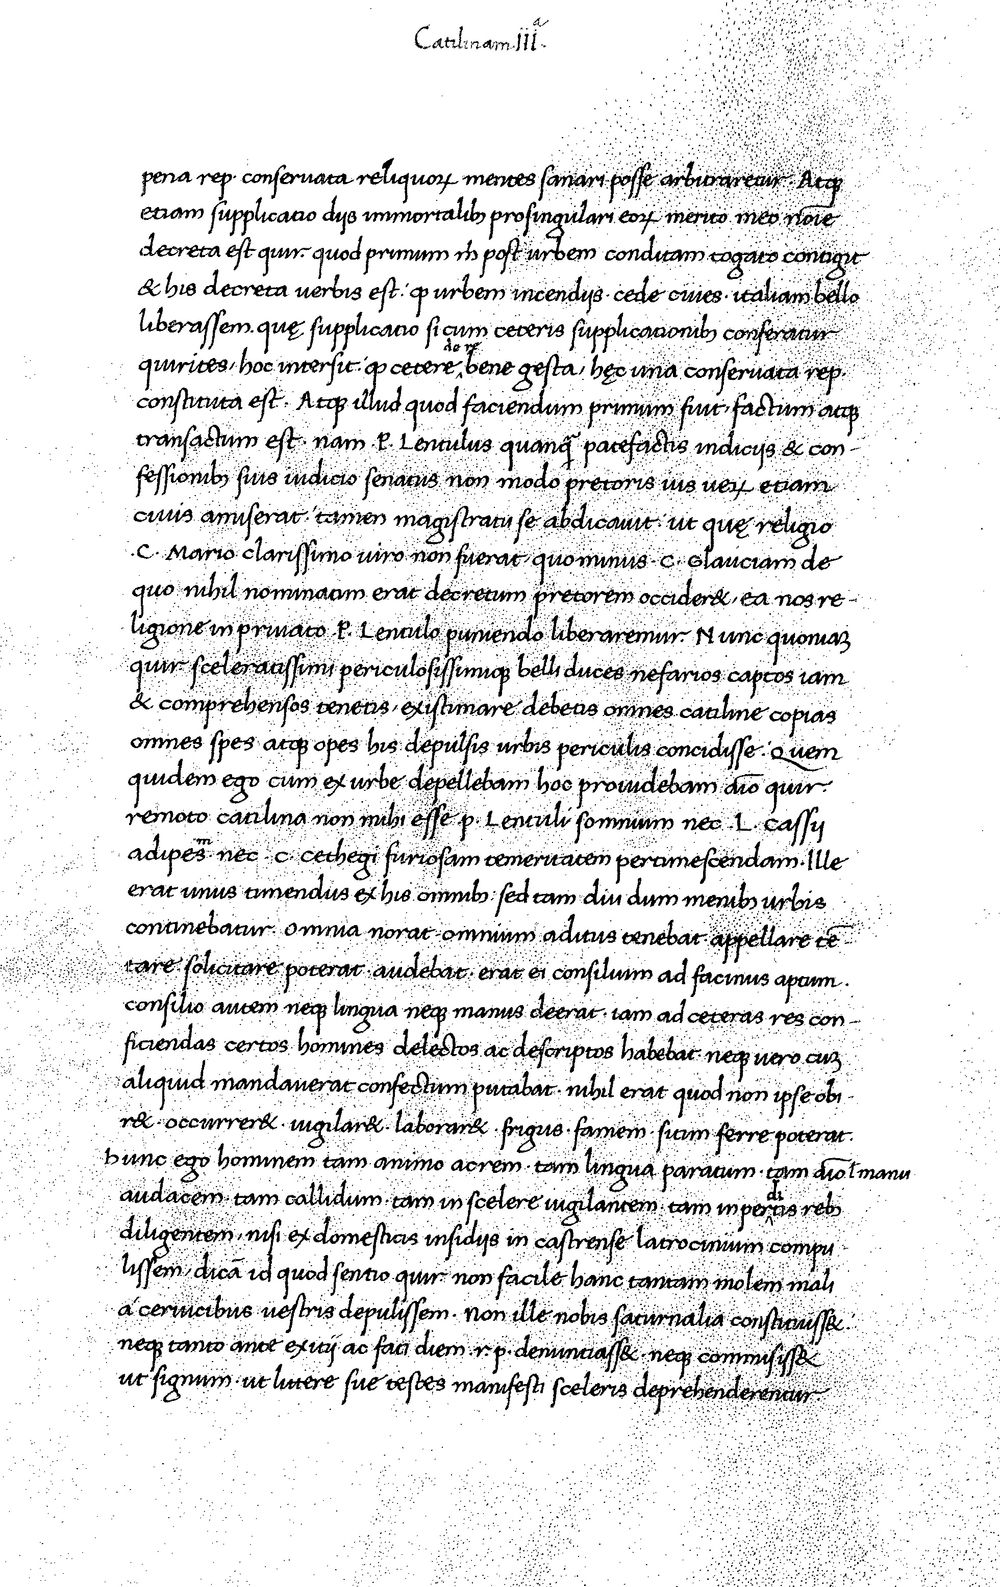 Catilinam. III.ª
pena rep. conseruata reliquoꝝ mentes sanari posse arbitraretur. Atqꝫ
etiam supplicatio dijs immortalibꝫ prosingulari eoꝝ merito meo noīe
decreta est quir. quod primum m̄ post urbem conditam togato contigit
& his decreta uerbis est. ꝙ urbem incendijs. cede ciues. italiam bello
liberassem. quę supplicatio si cum ceteris supplicationibꝫ conferatur
quirites, hoc intersit. ꝙ cetere bene gesta, hęc una conseruata rep.
constituta est. Atqꝫ illud quod faciendum primum fuit, factum atqꝫ
transactum est. nam P. Lentulus quanqꝫ patefactis indicijs & con-
fessionibꝫ suis iudicio senatus non modo pretoris ius ueꝝ etiam
ciuis amiserat. tamen magistratu se abdicauit. ut quę religio
.C. Mario clarissimo uiro non fuerat, quominus .C. Glauciam de
quo nihil nominatim erat decretum pretorem occider&, ea nos re-
ligione in priuato P. Lentulo puniendo liberaremur. Nunc quoniaꝫ
quir. sceleratissimi periculosissimiqꝫ belli duces nefarios captos iam
& comprehensos tenetis, existimare debetis omnes catiline copias
omnes spes atqꝫ opes his depulsis urbis periculis concidisse. Quem
quidem ego cum ex urbe depellebam hoc prouidebam aīo quir.
remoto catilina non mihi esse p. Lentuli somnium nec .L. Cassij
adipesᵐ nec .C. Cethegi furiosam temeritatem pertimescendam. Ille
erat unus timendus ex his omnibꝫ. sed tam diu dum menibꝫ urbis
continebatur. Omnia norat. omnium aditus tenebat. appellare tē
tare. solicitare poterat. audebat. erat ei consilium ad facinus aptum.
consilio autem neqꝫ lingua neqꝫ manus deerat. iam ad ceteras res con-
ficiendas certos homines delectos ac descriptos habebat. neqꝫ uero cuꝫ
aliquid mandauerat confectum putabat. nihil erat quod non ipse obi-
r&. occurrer&. uigilar&. laborar&. frigus. famem. sitim ferre poterat.
Hunc ego hominem tam animo acrem. tam lingua paratum. tam aīo l̄ manu
audacem. tam callidum. tam in scelere uigilantem. tam in pertis rebꝫ
diligentem, nisi ex domesticis insidijs in castrense latrocinium compu
lissem, dicā id quod sentio quir. non facile hanc tantam molem mali
a ceruicibus uestris depulissem. Non ille nobis saturnalia constituiss&.
neqꝫ tanto ante exitij ac fati diem .r.p. denuntiass&. neqꝫ commisiss&
ut signum. ut littere sue testes manifesti sceleris deprehenderentur